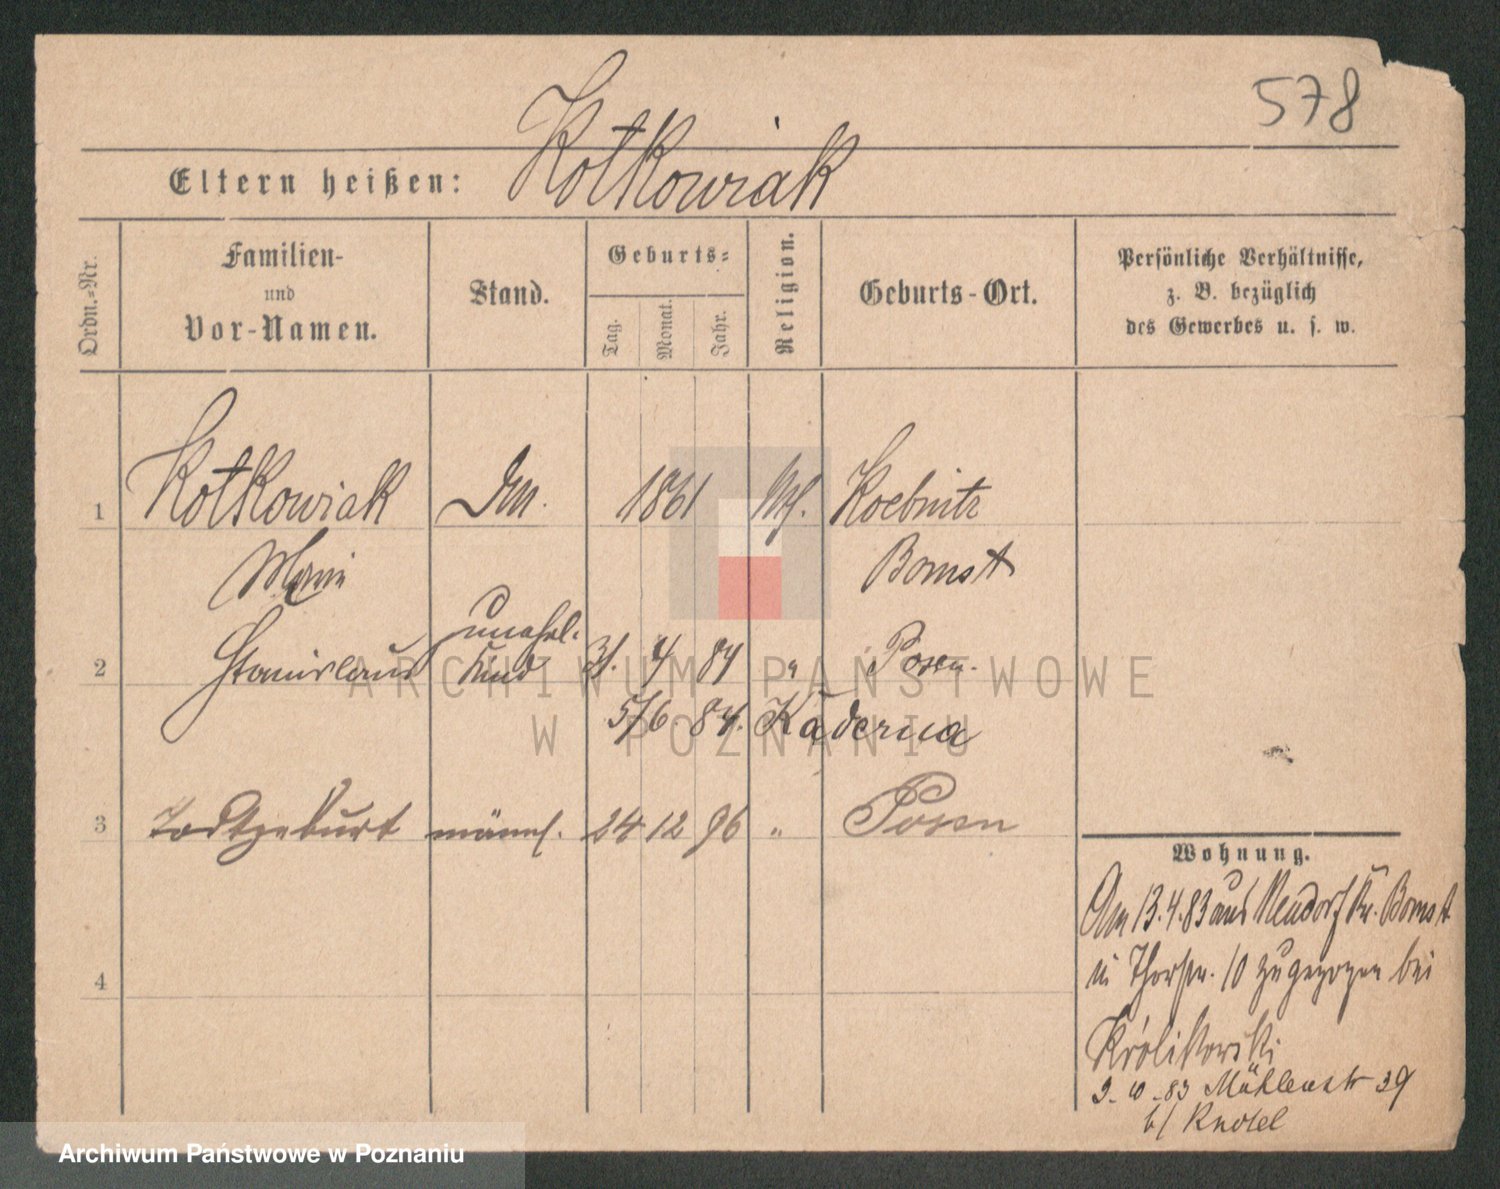 578
Kotkowiak
Eltern heißen:
Ordn.=Nr.
Familien-
und
Vor-Namen.
Stand.
Geburts=
Tag.
Monat.
Jahr.
Religion.
Geburts-Ort.
Persönliche Verhältnisse,
z. B. bezüglich
des Gewerbes u. s. w.
1 Kotkowiak 1861 Koebnitz
Marie Bomst
unehl.
2 Stanislaus Kind 4 84 " Posen.
5/6 84. Kąderna
3 Todtgeburt männl. 24 12 96 " Posen
4
Wohnung.
Am 13.4.83 aus Neudorf Kr. Bomst
10 zugezogen bei
Królikowski
83 Mühlenstr 39
b/ Knotel
ARCHIWUM PAŃSTWOWE
W POZNANIU
Archiwum Państwowe w Poznaniu